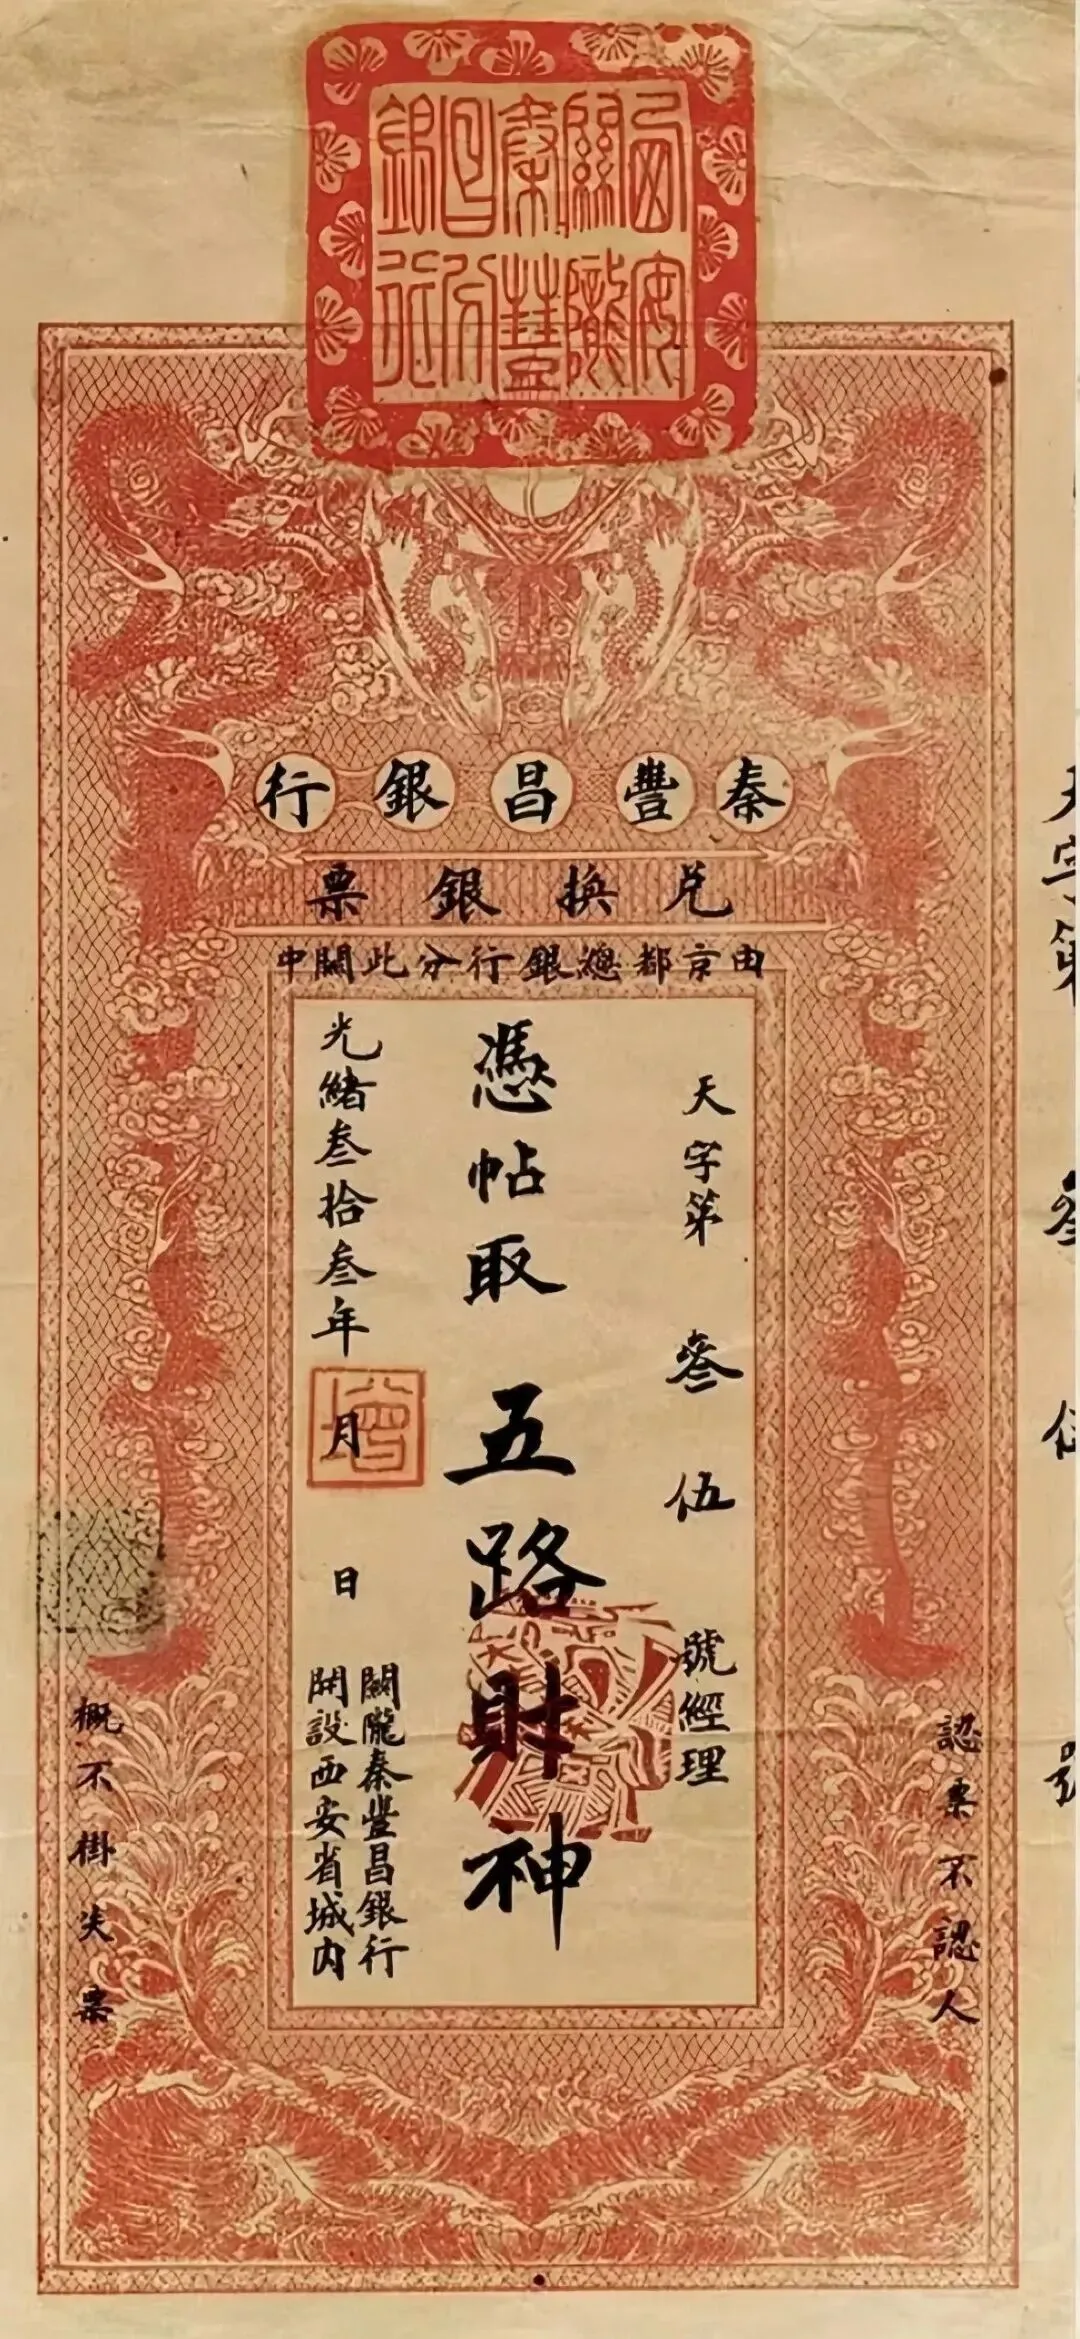 西安
關隴
秦豐
昌分
銀行
秦豐昌銀行
兌換銀票
由京都總銀行分此關中
天字第 叁 伍 號經理
憑帖取 五路財神
光緒叁拾叁年 月 日
關隴秦豐昌銀行
開設西安省城內
認票不認人
概不掛失票